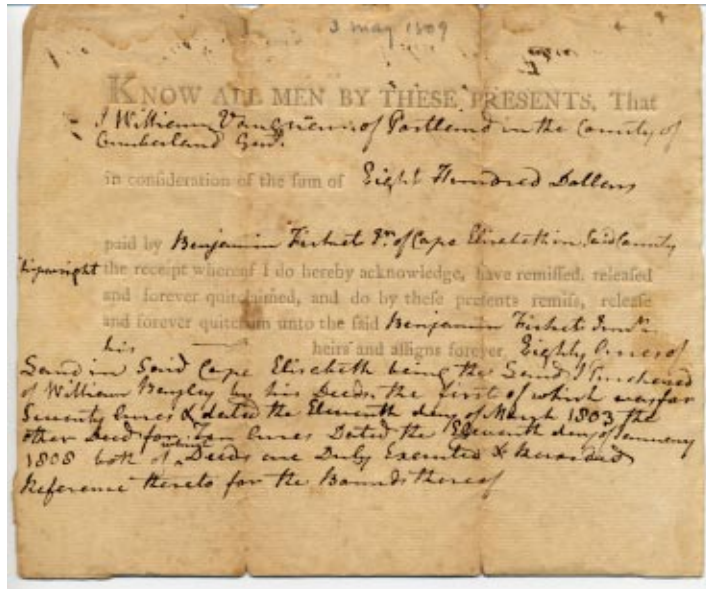 3 may 1809
KNOW ALL MEN BY THESE PRESENTS, That
I William Vaughan of Portland in the County of
Cumberland
in consideration of the sum of Eight Hundred Dollars
paid by Benjamin Fickett Jr. of Cape Elizabeth in Said County
Shipwright the receipt whereof I do hereby acknowledge, have remissed, released
and forever quitclaimed, and do by these presents remiss, release
and forever quitclaim unto the said Benjamin Fickett Junr.
his heirs and assigns forever, Eighty Acres of
Land in Said Cape Elizabeth being the Land I Purchased
of William Bayley by his Deeds, the first of which was for
Seventy Acres & dated the Eleventh day of March 1803 the
other Deed for Ten Acres Dated the Eleventh day of January
1808 both of which Deeds are Duly Executed & Recorded
Reference thereto for the Bounds thereof